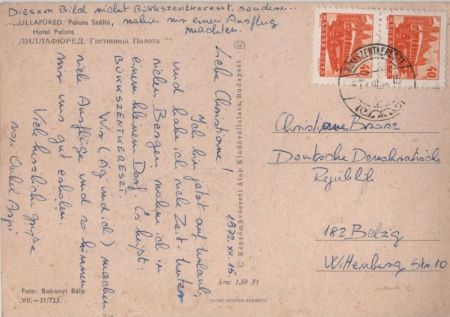 Diesem Bild nicht Bükkszentkereszt, sondern..
"LILLAFÜRED. Palota Szálló,
wohin wir einen Ausflug
Hotel Palota
machten.
ЛИЛЛАФЮРЕД. Гостиница Палота
1972. XII. 15.
Liebe Christiane!
Ich bin jetzt auf Urlaub,
und habe ich viele Zeit. Unter
vielen Bergen wohne ich in
einem kleinen Dorf. Es heißt:
BÜKKSZENTKERESZT.
Wir (Ági und ich) machen
viele Ausflüge und so können
wir uns gut erholen.
Viele herzliche Grüße
von Onkel
Foto: Bakonyi Béla
VII.-31/723.
© Képzőművészeti Alap Kiadóvállalata, Budapest
Ára: 1,60 Ft
OFFSET NYOMDA BUDAPEST
MAGYAR POSTA
40
40
BÜKKSZENTKERESZT
Christiane
Deutsche Demokratische
Republik
182 Belzig
Wittenberg Str. 10